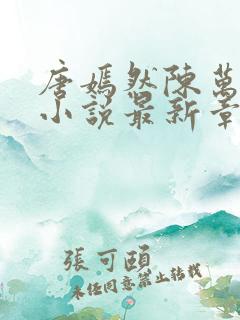 唐嫣然陳萬
小說最新章
張可頤
未經同意禁止轉載